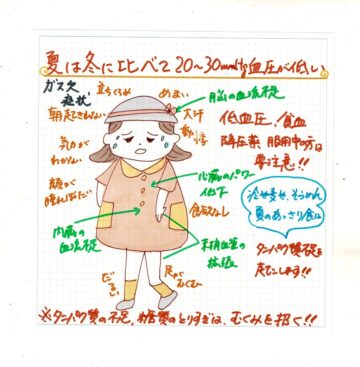 夏は冬に比べて20〜30mmHg血圧が低い
ガス欠
症状
立ちくらみ
めまい
脳の血流不足
朝起きれない
大汗
動悸
低血圧、貧血
降圧薬 服用中の方は
要注意!!
気力が
わかない
心臓のパワー
低下
顔が
腫れぼったい
食欲なし
冷や麦や、そうめん
夏のあっさり食は
タンパク質不足
を起こします!!
内臓の
血流不足
末梢血管の
拡張
だるい
足が
むくむ
※タンパク質の不足、糖質のとりすぎは、むくみを招く!!